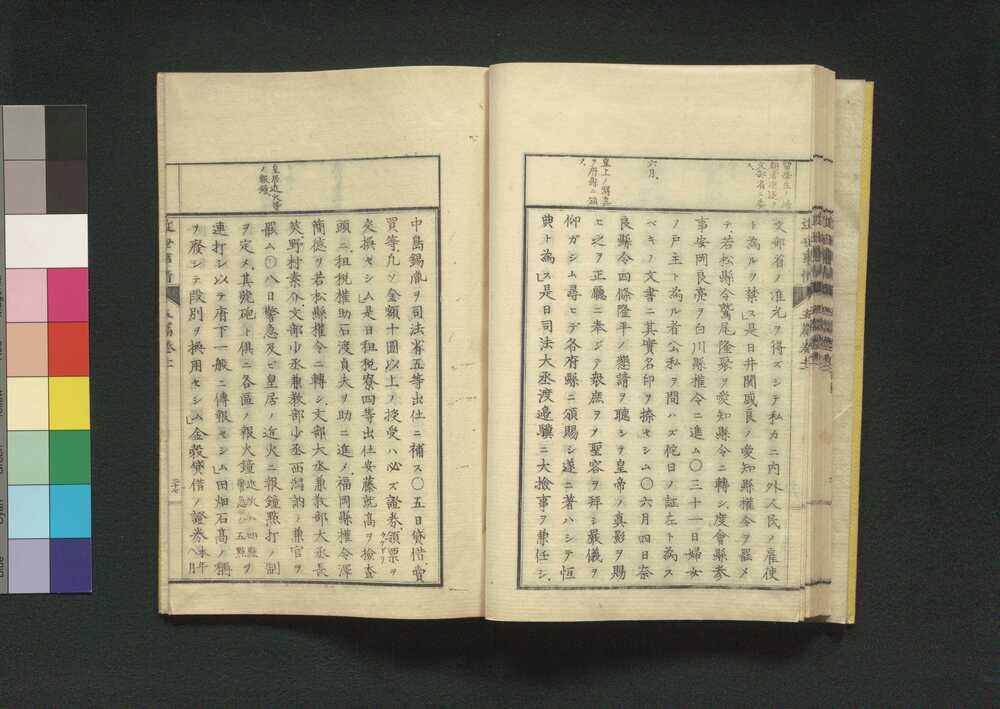 文部省ノ准允ヲ得ズシテ私カニ内外人民ノ雇使
ト為ルヲ禁ス」是日井関盛良ノ愛知縣権令ヲ罷メ
テ、若松縣令鷲尾隆聚ヲ愛知縣令ニ轉シ、度會縣参
事安岡良亮ヲ白川縣権令ニ進ム〇三十一日婦女
ノ戸主ト為ル者公私ヲ問ハズ他日ノ証左ト為ス
ベキノ文書ニ其實名印ヲ捺セシム〇六月四日奈
良縣令四條隆平ノ懇請ヲ聴シテ皇帝ノ真影ヲ賜
ヒ之ヲ正廳ニ奉ジテ衆庶ヲメ聖容ヲ拜シ嚴儀ヲ
仰ガシム尋ヒデ各府縣ニ頒賜シ遂ニ著ハシテ恒
典ト為ス」是日司法大丞渡邊驥ニ大検事ヲ兼任シ、
六月、
皇上ノ寫真
ヲ府縣ニ頒
ス
中島錫胤ヲ司法省五等出仕ニ補ス〇五日貸借賣
買等凡ソ金額十圓以上ノ授受ハ必ズ證券領票ヲ
交換セシム是日租税寮四等出仕安藤就高ヲ検査
頭ニ、租税權助石渡貞夫ヲ助ニ進メ、福岡縣權令澤
簡徳ヲ若松縣權令ニ轉シ、文部大丞兼教部大丞長
茨野村素介、文部少丞兼教部少丞西潟訥ノ兼官ヲ
罷ム〇八日警急及ビ皇居ノ近火ニ報鐘點打ノ制
ヲ定メ、其號砲ト俱ニ各區ノ報火鐘
連打シ以テ府下一般ニ傳報セシム」田畑石高ノ稱
ヲ廢シテ段別ヲ換用セシム」金穀貸借ノ證券
皇居近火等
ノ報鐘